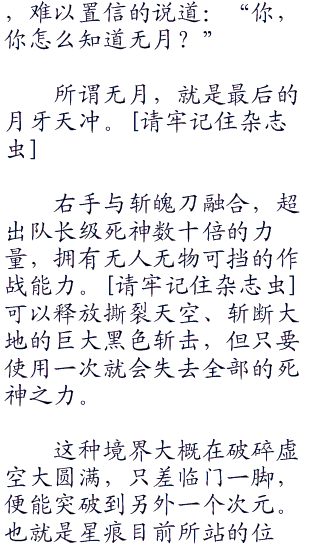 ，难以置信的说道：“你，
你怎么知道无月？”
所谓无月，就是最后的
月牙天冲。[请牢记住杂志
虫]
右手与斩魄刀融合，超
出队长级死神数十倍的力
量，拥有无人无物可挡的作
战能力。[请牢记住杂志虫]
可以释放撕裂天空、斩断大
地的巨大黑色斩击，但只要
使用一次就会失去全部的死
神之力。
这种境界大概在破碎虚
空大圆满，只差临门一脚，
便能突破到另外一个次元。
也就是星痕目前所站的位